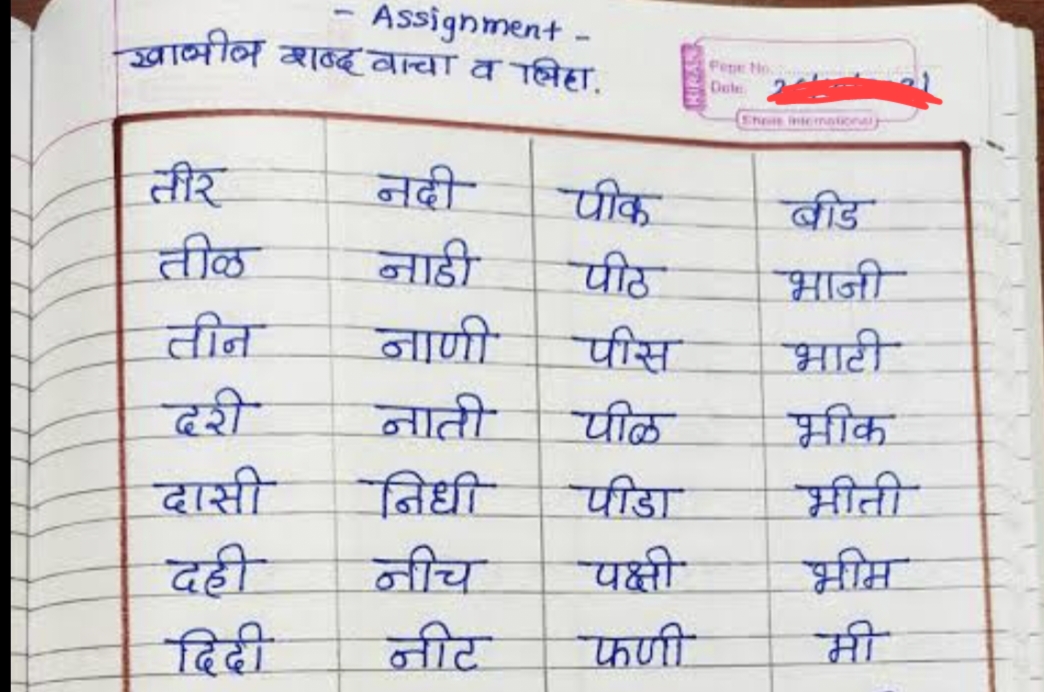 - Assignment -
खालील शब्द वाचा व लिहा.
Page No.
Date:
Shree International
तीर नदी पीक बीड
तीळ नाडी पीठ भाजी
तीन नाणी पीस भाटी
दरी नाती पीळ भीक
दासी निधी पीडा भीती
दही नीच पक्षी भीम
दिदी नीट फणी मी